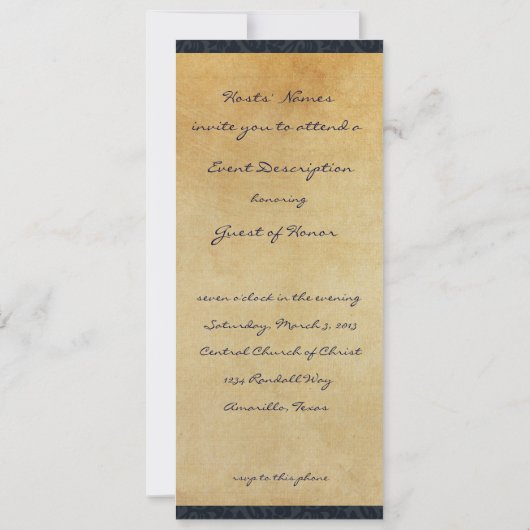 Hosts' Names
invite you to attend a
Event Description
honoring
Guest of Honor
seven o'clock in the evening
Saturday, March 3, 2013
Central Church of Christ
1234 Randall Way
Amarillo, Texas
rsvp to this phone